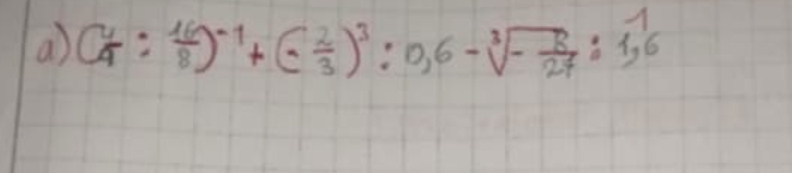 a) (4/5 : 16/8)^-1 + (-2/3)^3 : 0,6 - ∛(-8/27) : 1,6^-1